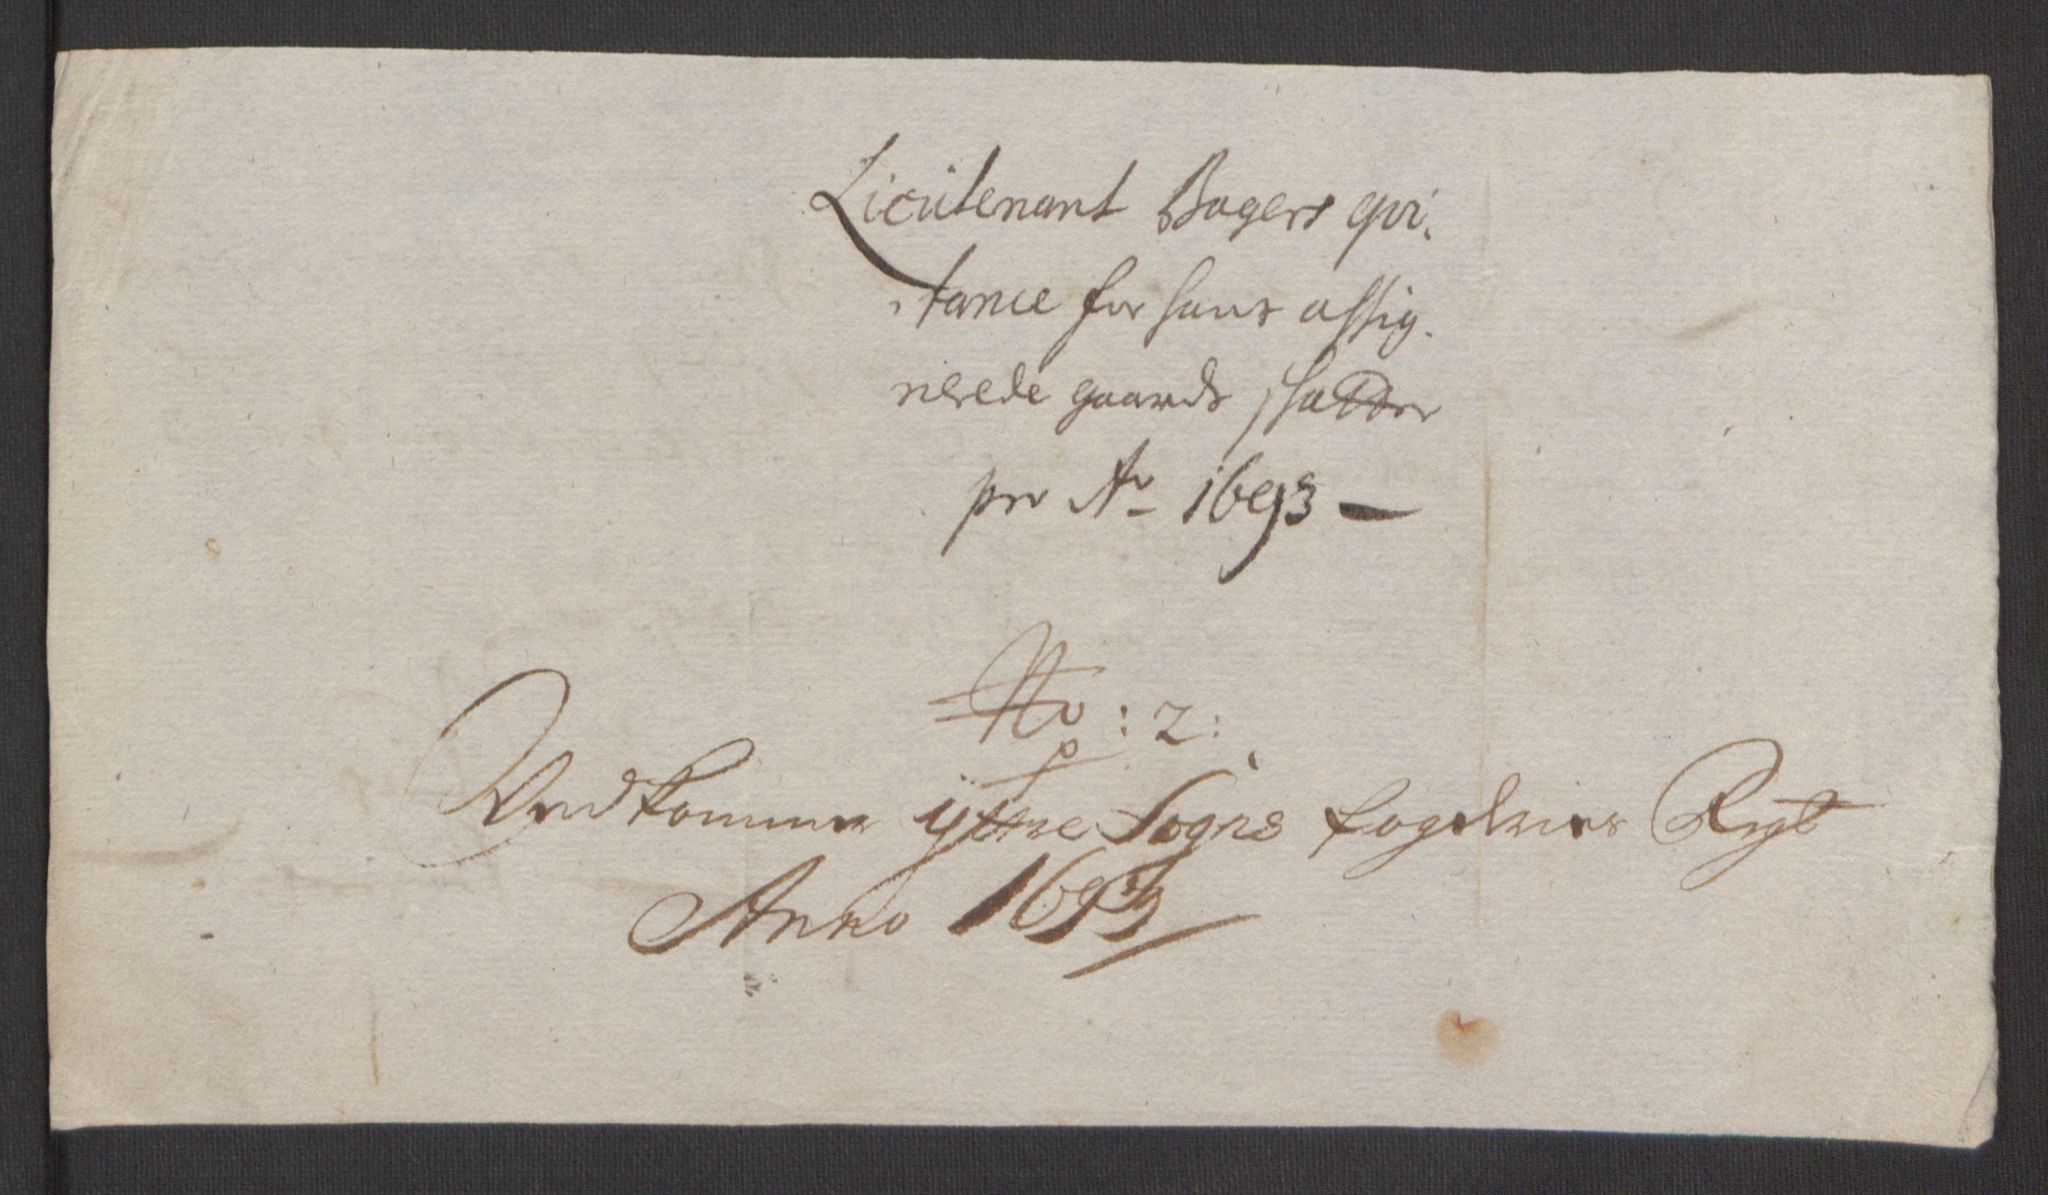 Lieütenant Bagers qvi-
tance for hans assig-
nerede gaards schatter
pro Ao 1693 —
No: 2:
Vedkommer ÿttre Sogns fogderies Regt
Anno 1693